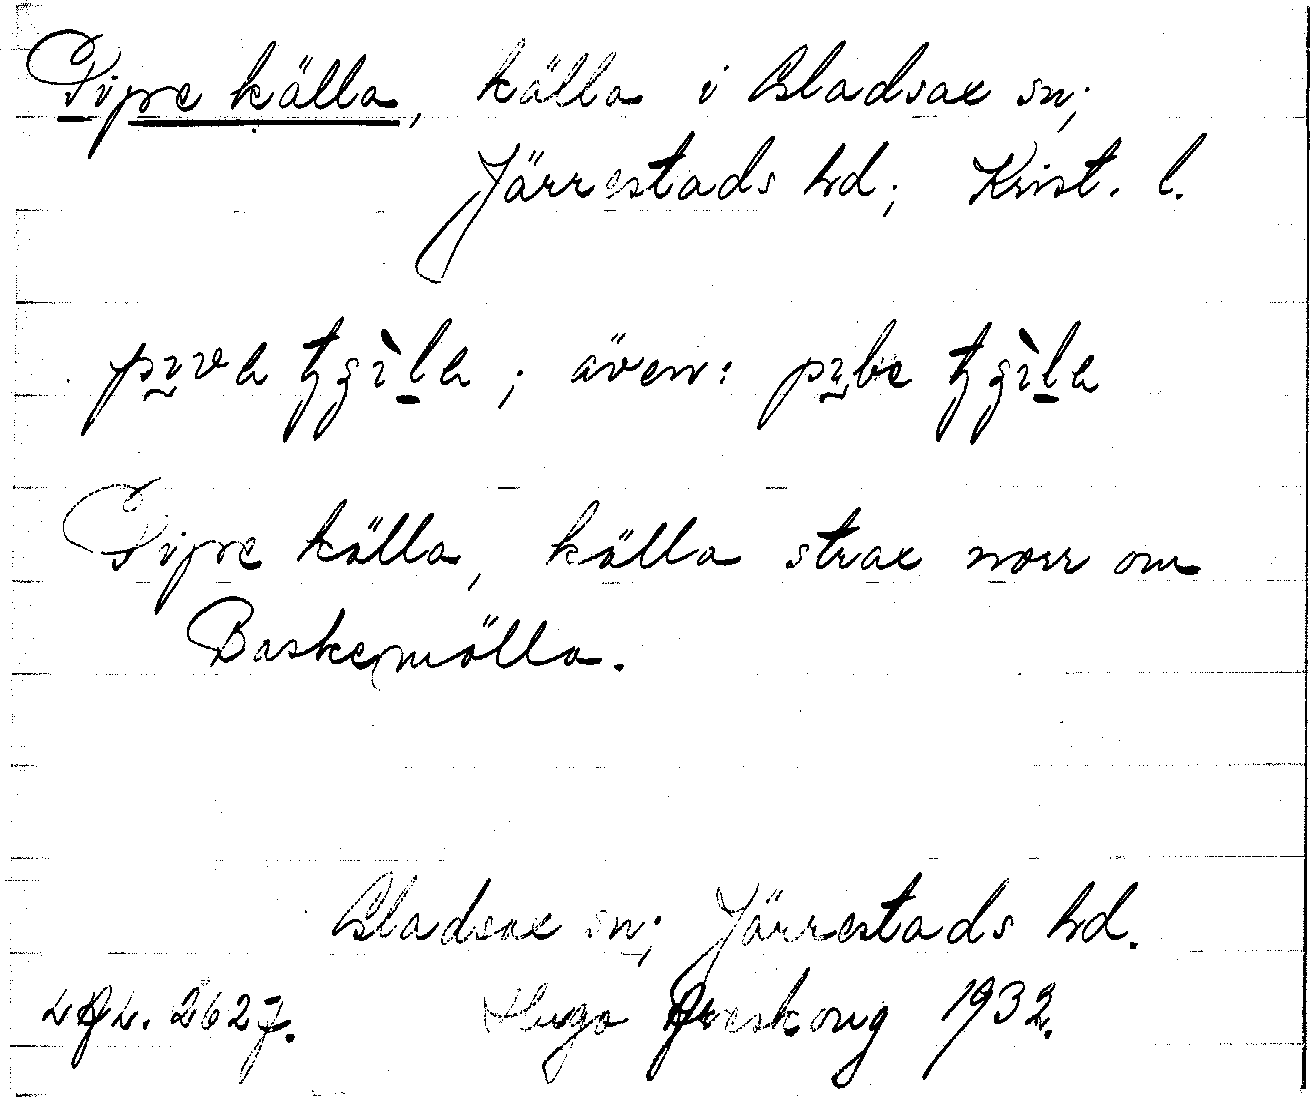 Pipe källa, källa i Gladsax sn;
Järrestads hd; Krist. l.
även:
Pipe källa, källa strax norr om
Baskemölla.
Gladsax sn; Järrestads hd.
LAL. 2627. Hugo Areskoug 1932.